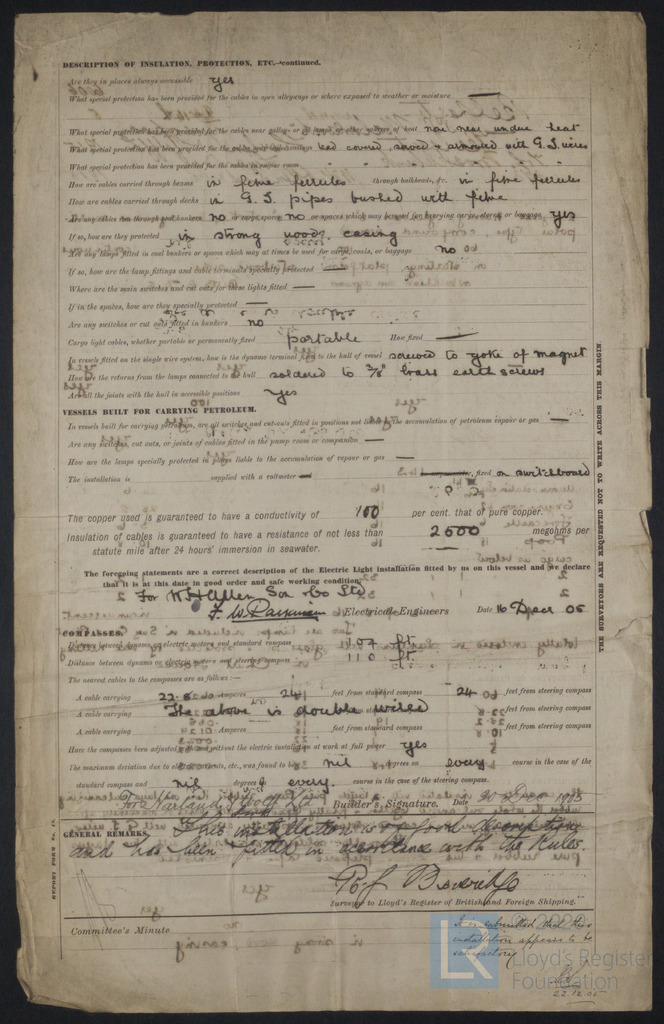 DESCRIPTION OF INSULATION, PROTECTION, ETC.—continued.
Are they in places always accessible yes
What special protection has been provided for the cables in open alleyways or where exposed to weather or moisture —
What special protection has been provided for the cables near galleys or oil lamps or other sources of heat none near undue heat
What special protection has been provided for the cables near boiler casings lead covered, served & armoured with G.I. wires
What special protection has been provided for the cables in engine room " " " " "
How are cables carried through beams in fibre ferrules through bulkheads, &c. in fibre ferrules
How are cables carried through decks in G.I. pipes bushed with fibre
Are any cables run through coal bunkers no or cargo spaces no or spaces which may be used for carrying cargo, stores or baggage yes
If so, how are they protected in strong wood casing
Are any lamps fitted in coal bunkers or spaces which may at times be used for cargo, coals, or baggage no
If so, how are the lamp fittings and cable terminals specially protected —
Where are the main switches and cut outs for these lights fitted —
If in the spaces, how are they specially protected —
Are any switches or cut outs fitted in bunkers no
Cargo light cables, whether portable or permanently fixed portable How fixed —
In vessels fitted on the single wire system, how is the dynamo terminal fixed to the hull of vessel screwed to yoke of magnet
How are the returns from the lamps connected to the hull soldered to 3/8" brass earth screws
Are all the joints with the hull in accessible positions yes
VESSELS BUILT FOR CARRYING PETROLEUM.
In vessels built for carrying petroleum, are all switches and cut-outs fitted in positions not liable to the accumulation of petroleum vapour or gas —
Are any switches, cut outs, or joints of cables fitted in the pump room or companion —
How are the lamps specially protected in places liable to the accumulation of vapour or gas —
The installation is supplied with a voltmeter and fixed on switchboard
The copper used is guaranteed to have a conductivity of 100 per cent. that of pure copper.
Insulation of cables is guaranteed to have a resistance of not less than 2600 megohms per
statute mile after 24 hours' immersion in seawater.
The foregoing statements are a correct description of the Electric Light installation fitted by us on this vessel and we declare
that it is at this date in good order and safe working condition.
For W H Allen Son & Co Ltd
Electrical Engineers Date 16 Decr 05
COMPASSES.
Distance between dynamo or electric motors and standard compass 104 ft.
Distance between dynamo or electric motors and steering compass 110 ft.
The nearest cables to the compasses are as follows:—
A cable carrying 22.8 Amperes 24 feet from standard compass 24 feet from steering compass
A cable carrying The above is double wired feet from steering compass
A cable carrying Amperes feet from standard compass feet from steering compass
Have the compasses been adjusted with and without the electric installation at work at full power yes
The maximum deviation due to electric currents, etc., was found to be nil degrees on every course in the case of the
standard compass and nil degrees on every course in the case of the steering compass.
For Harland & Wolff Ltd Builder's Signature. Date 20 Dec 1905
GENERAL REMARKS. This installation is of good description
and has been fitted in accordance with the Rules.
Surveyor to Lloyd's Register of British and Foreign Shipping.
Committee's Minute
It is submitted that this
installation appears to be
satisfactory
22.12.05
THE SURVEYORS ARE REQUESTED NOT TO WRITE ACROSS THIS MARGIN
REPORT FORM No. 13.
LR Lloyd's Register
Foundation